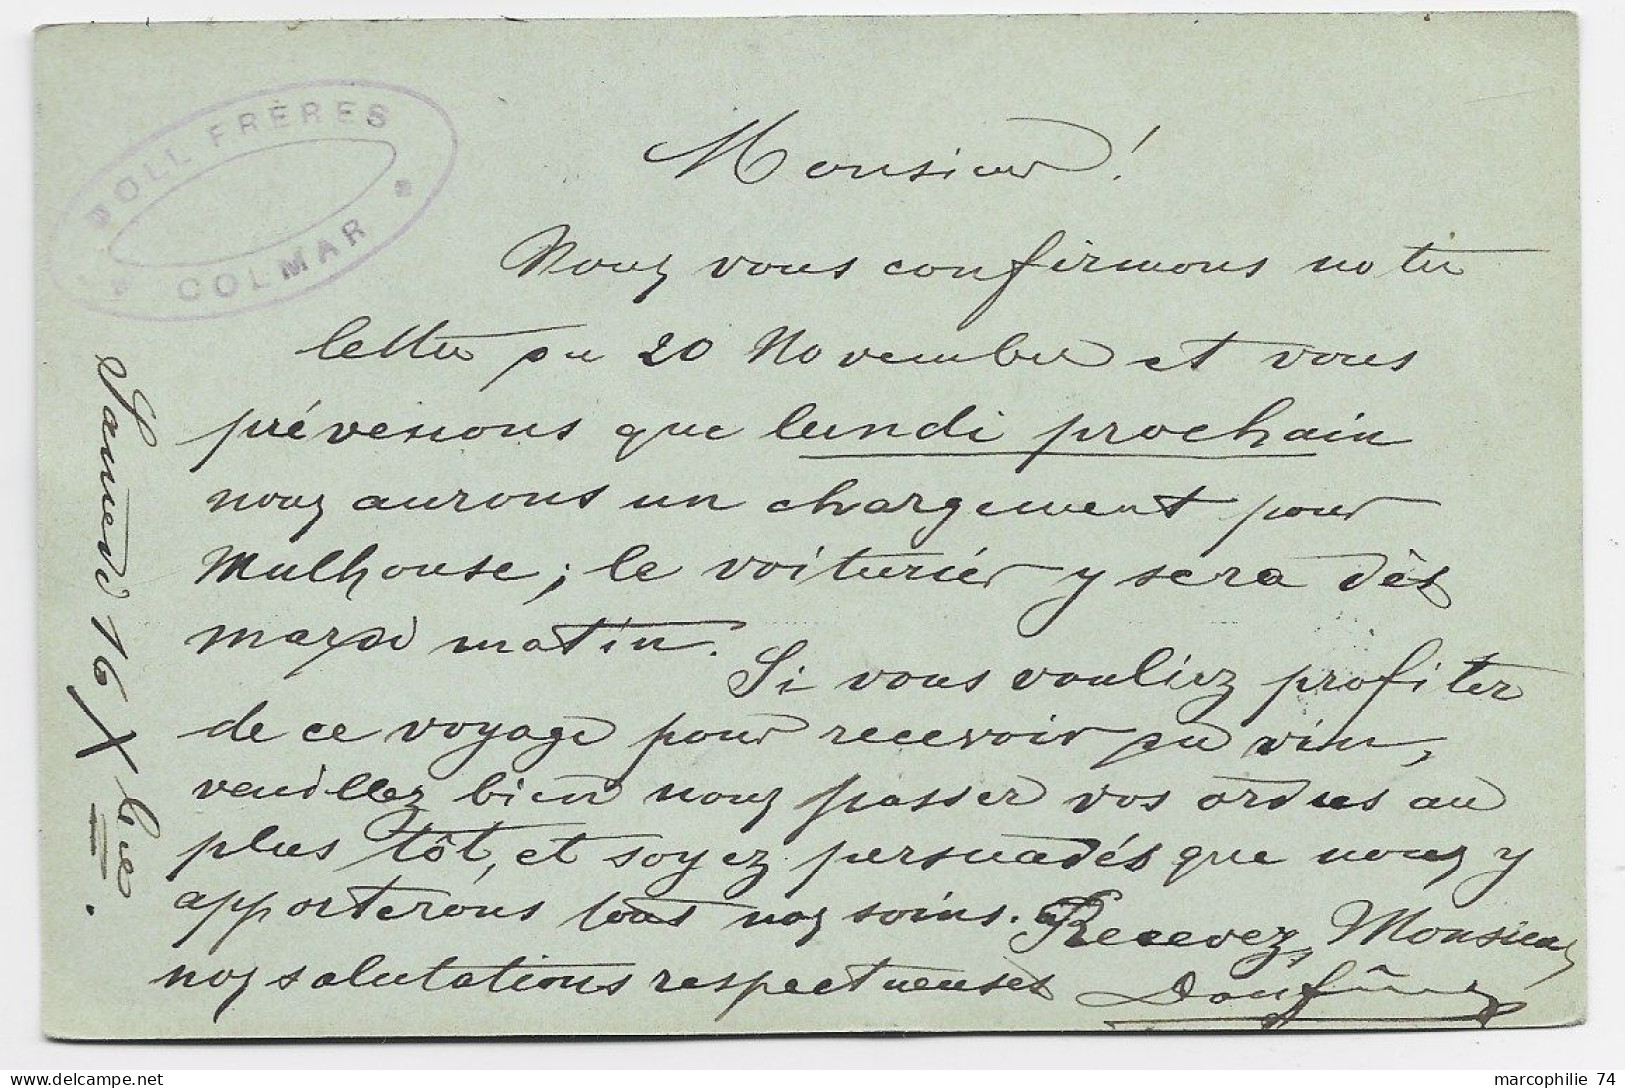 DOLL FRÈRES
COLMAR
Monsieur!
Nous vous confirmons notre
lettre du 20 Novembre et vous
prévenons que lundi prochain
nous aurons un chargement pour
Mulhouse; le voiturier y sera dès
mardi matin.
Si vous vouliez profiter
de ce voyage pour recevoir du vin,
veuillez bien nous passer vos ordres au
plus tôt, et soyez persuadés que nous y
apporterons tous nos soins. Recevez, Monsieur,
nos salutations respectueuses
Samedi 16/X bre.
marcophilie 74